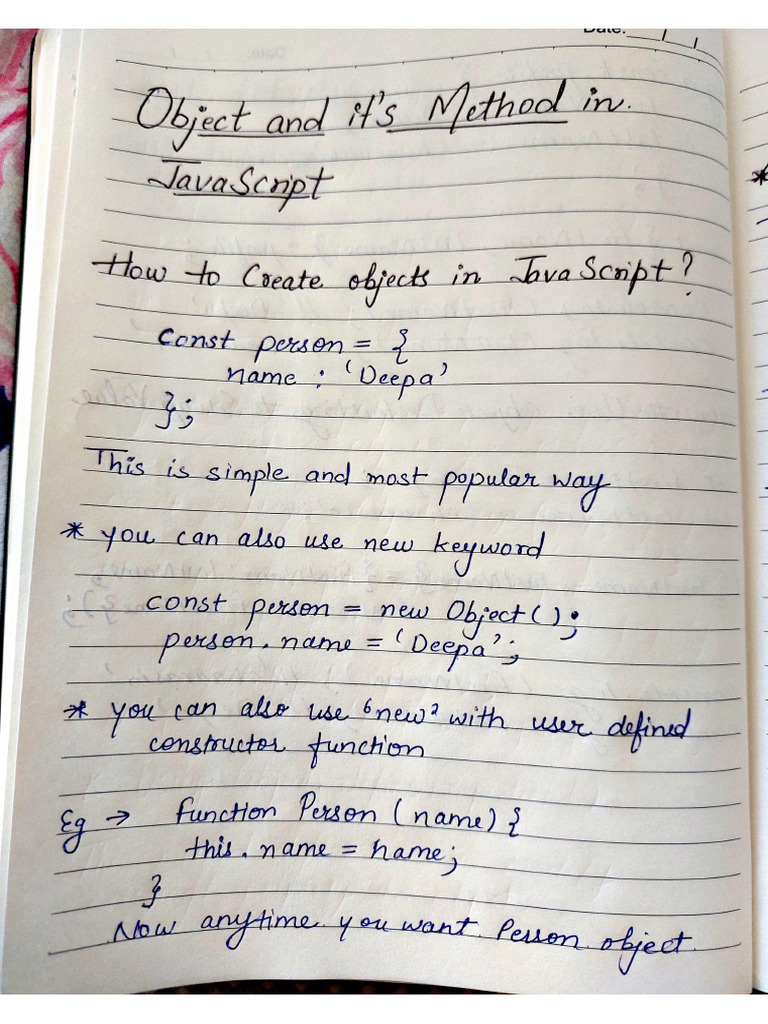 Date:
Object and it's Method in.
JavaScript
How to Create objects in JavaScript?
const person = {
name : 'Deepa'
};
This is simple and most popular way
* you can also use new keyword
const person = new Object();
person.name = 'Deepa';
* you can also use 'new' with user defined
constructor function
Eg → function Person (name) {
this.name = name;
}
Now anytime you want Person object